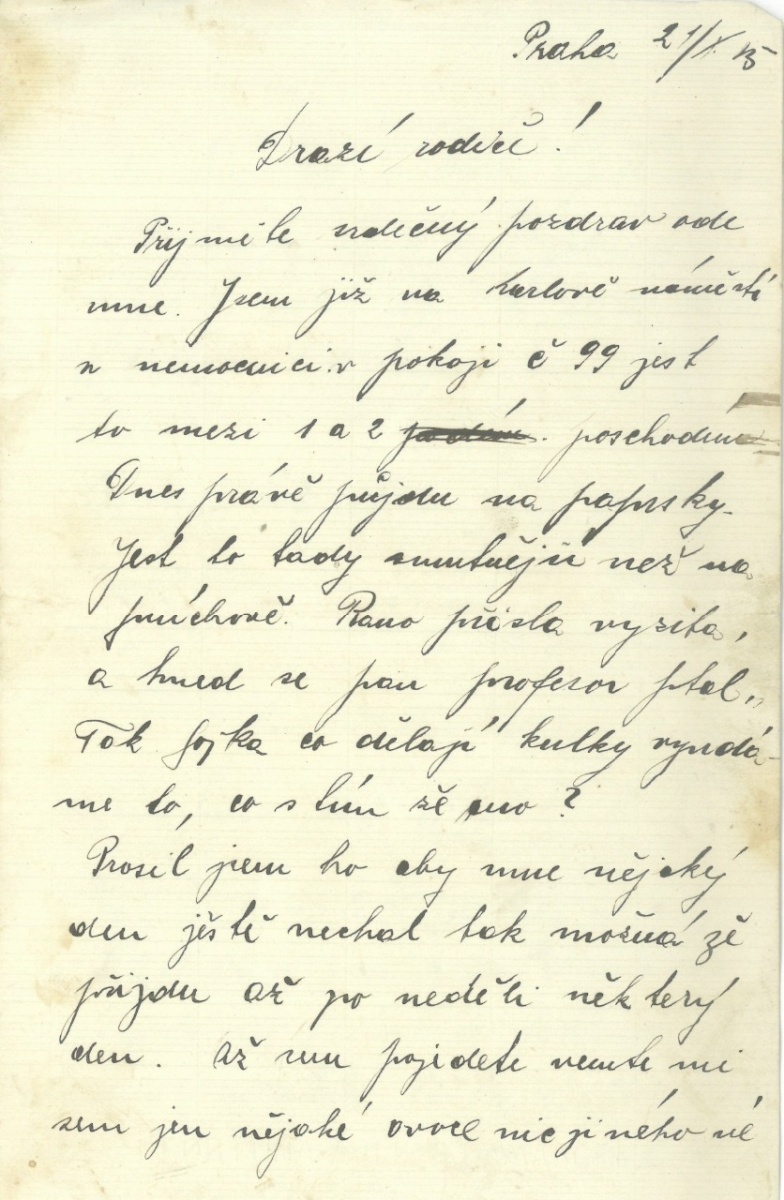 Praha 21/X 15
Drazí rodiče!
Přijměte srdečný pozdrav ode
mne. Jsem již na karlově náměstí
v nemocnici v pokoji č 99 jest
to mezi 1 a 2 poschodím
Dnes právě půjdu na paprsky.
Jest to tady smutnější než na
Rano přišla vyzita,
a hned se pan profesor ptal,,
Tak Fojka co dělají kulky vyndá-
me to, co s tím že ano?
Prosil jsem ho aby mne nějaký
den ještě nechal tak možná že
přijdu až po neděli některý
den. Až sem pojedete vemte mi
sem jen nějaké ovoce nic jiného né